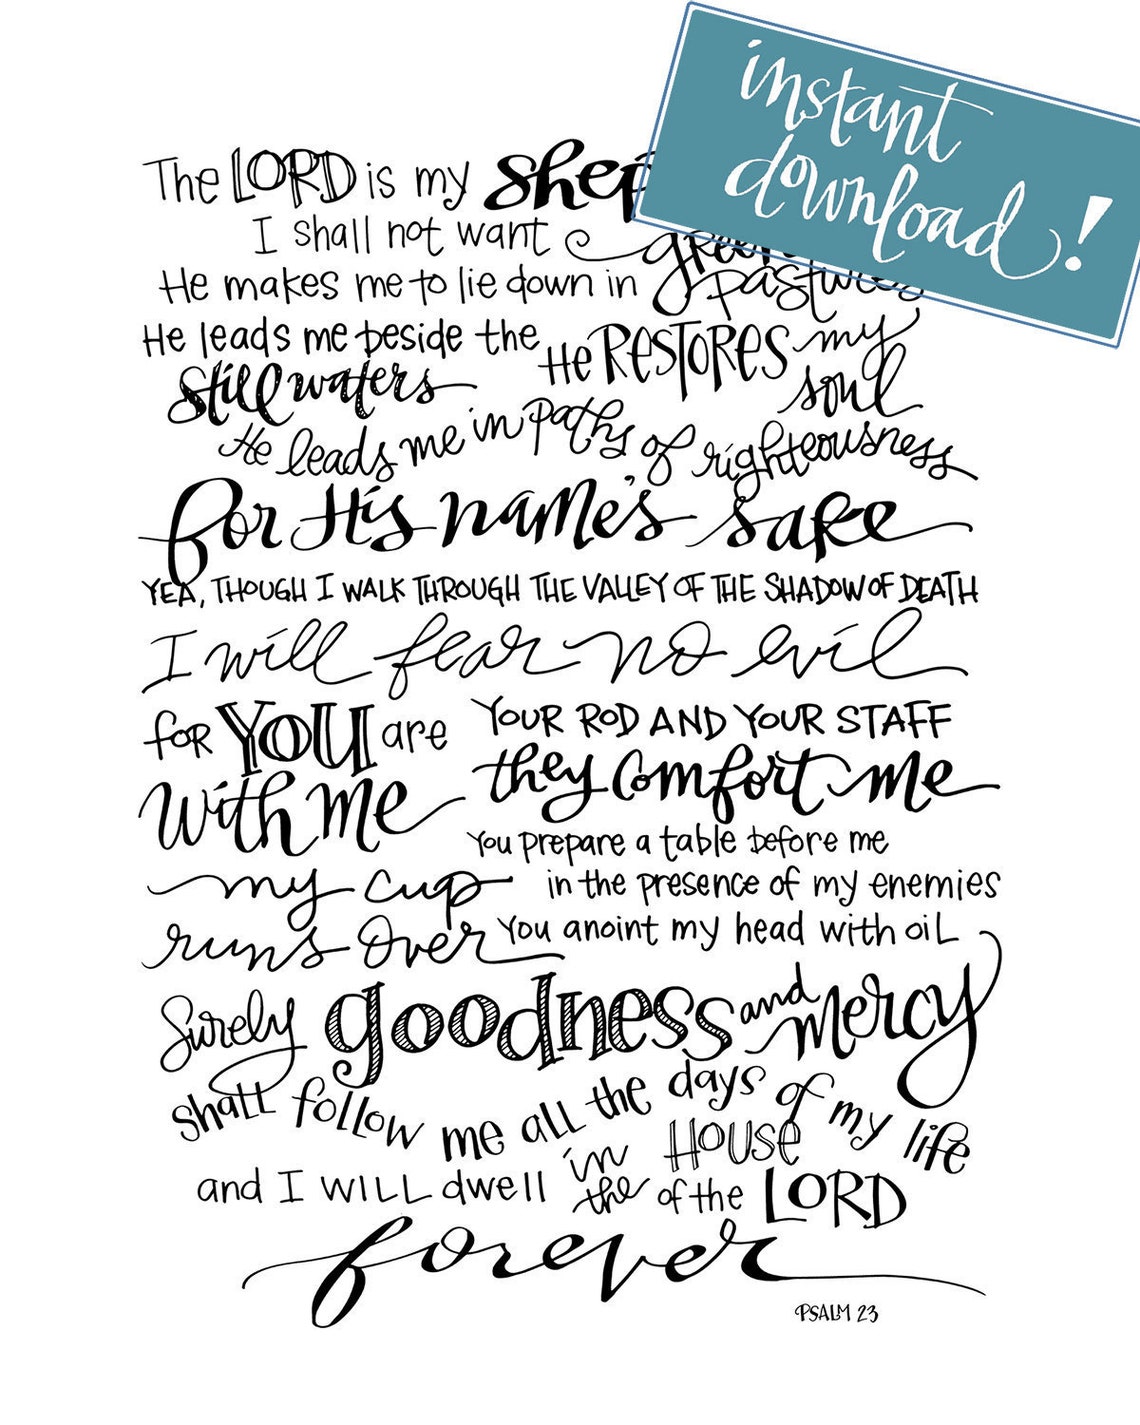 instant
download!
The LORD is my
I shall not want
He makes me to lie down in green
pastures
He leads me beside the
still waters
He RESTORES my
soul
He leads me in paths of righteousness
for His name's sake
YEA, THOUGH I WALK THROUGH THE VALLEY OF THE SHADOW OF DEATH
I will fear no evil
for YOU are
with me
YOUR ROD AND YOUR STAFF
they comfort me
You prepare a table before me
in the presence of my enemies
You anoint my head with oil
my cup
runs over
Surely goodness and mercy
shall follow me all the days of my life
and I WILL dwell in the HOUSE of the LORD
forever
PSALM 23